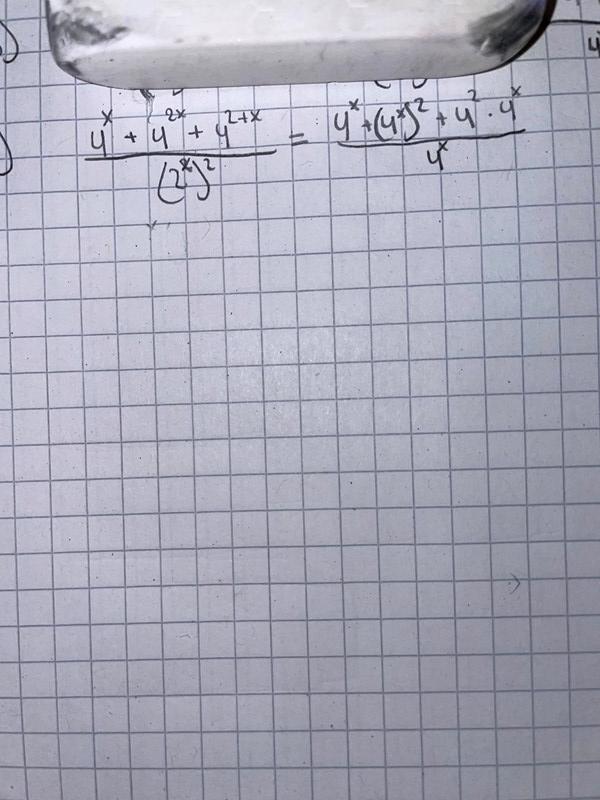 4^x + 4^{2x} + 4^{2+x} / (2^x)^2 = 4^x + (4^x)^2 + 4^2 · 4^x / 4^x